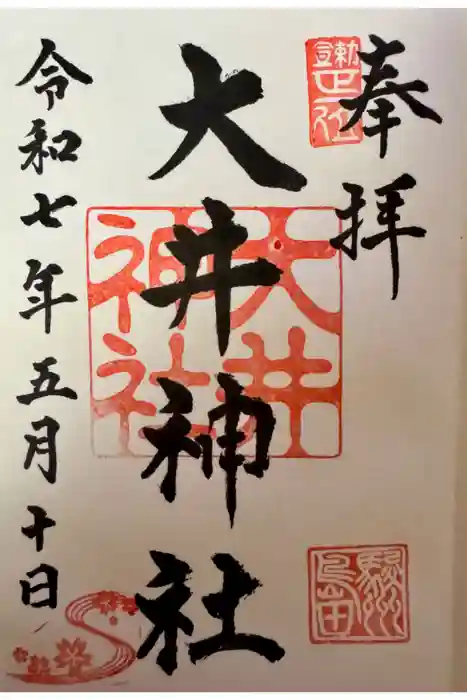 奉拝
勅宣正一位
大井神社
大井神社
駿州島田
令和七年五月十日